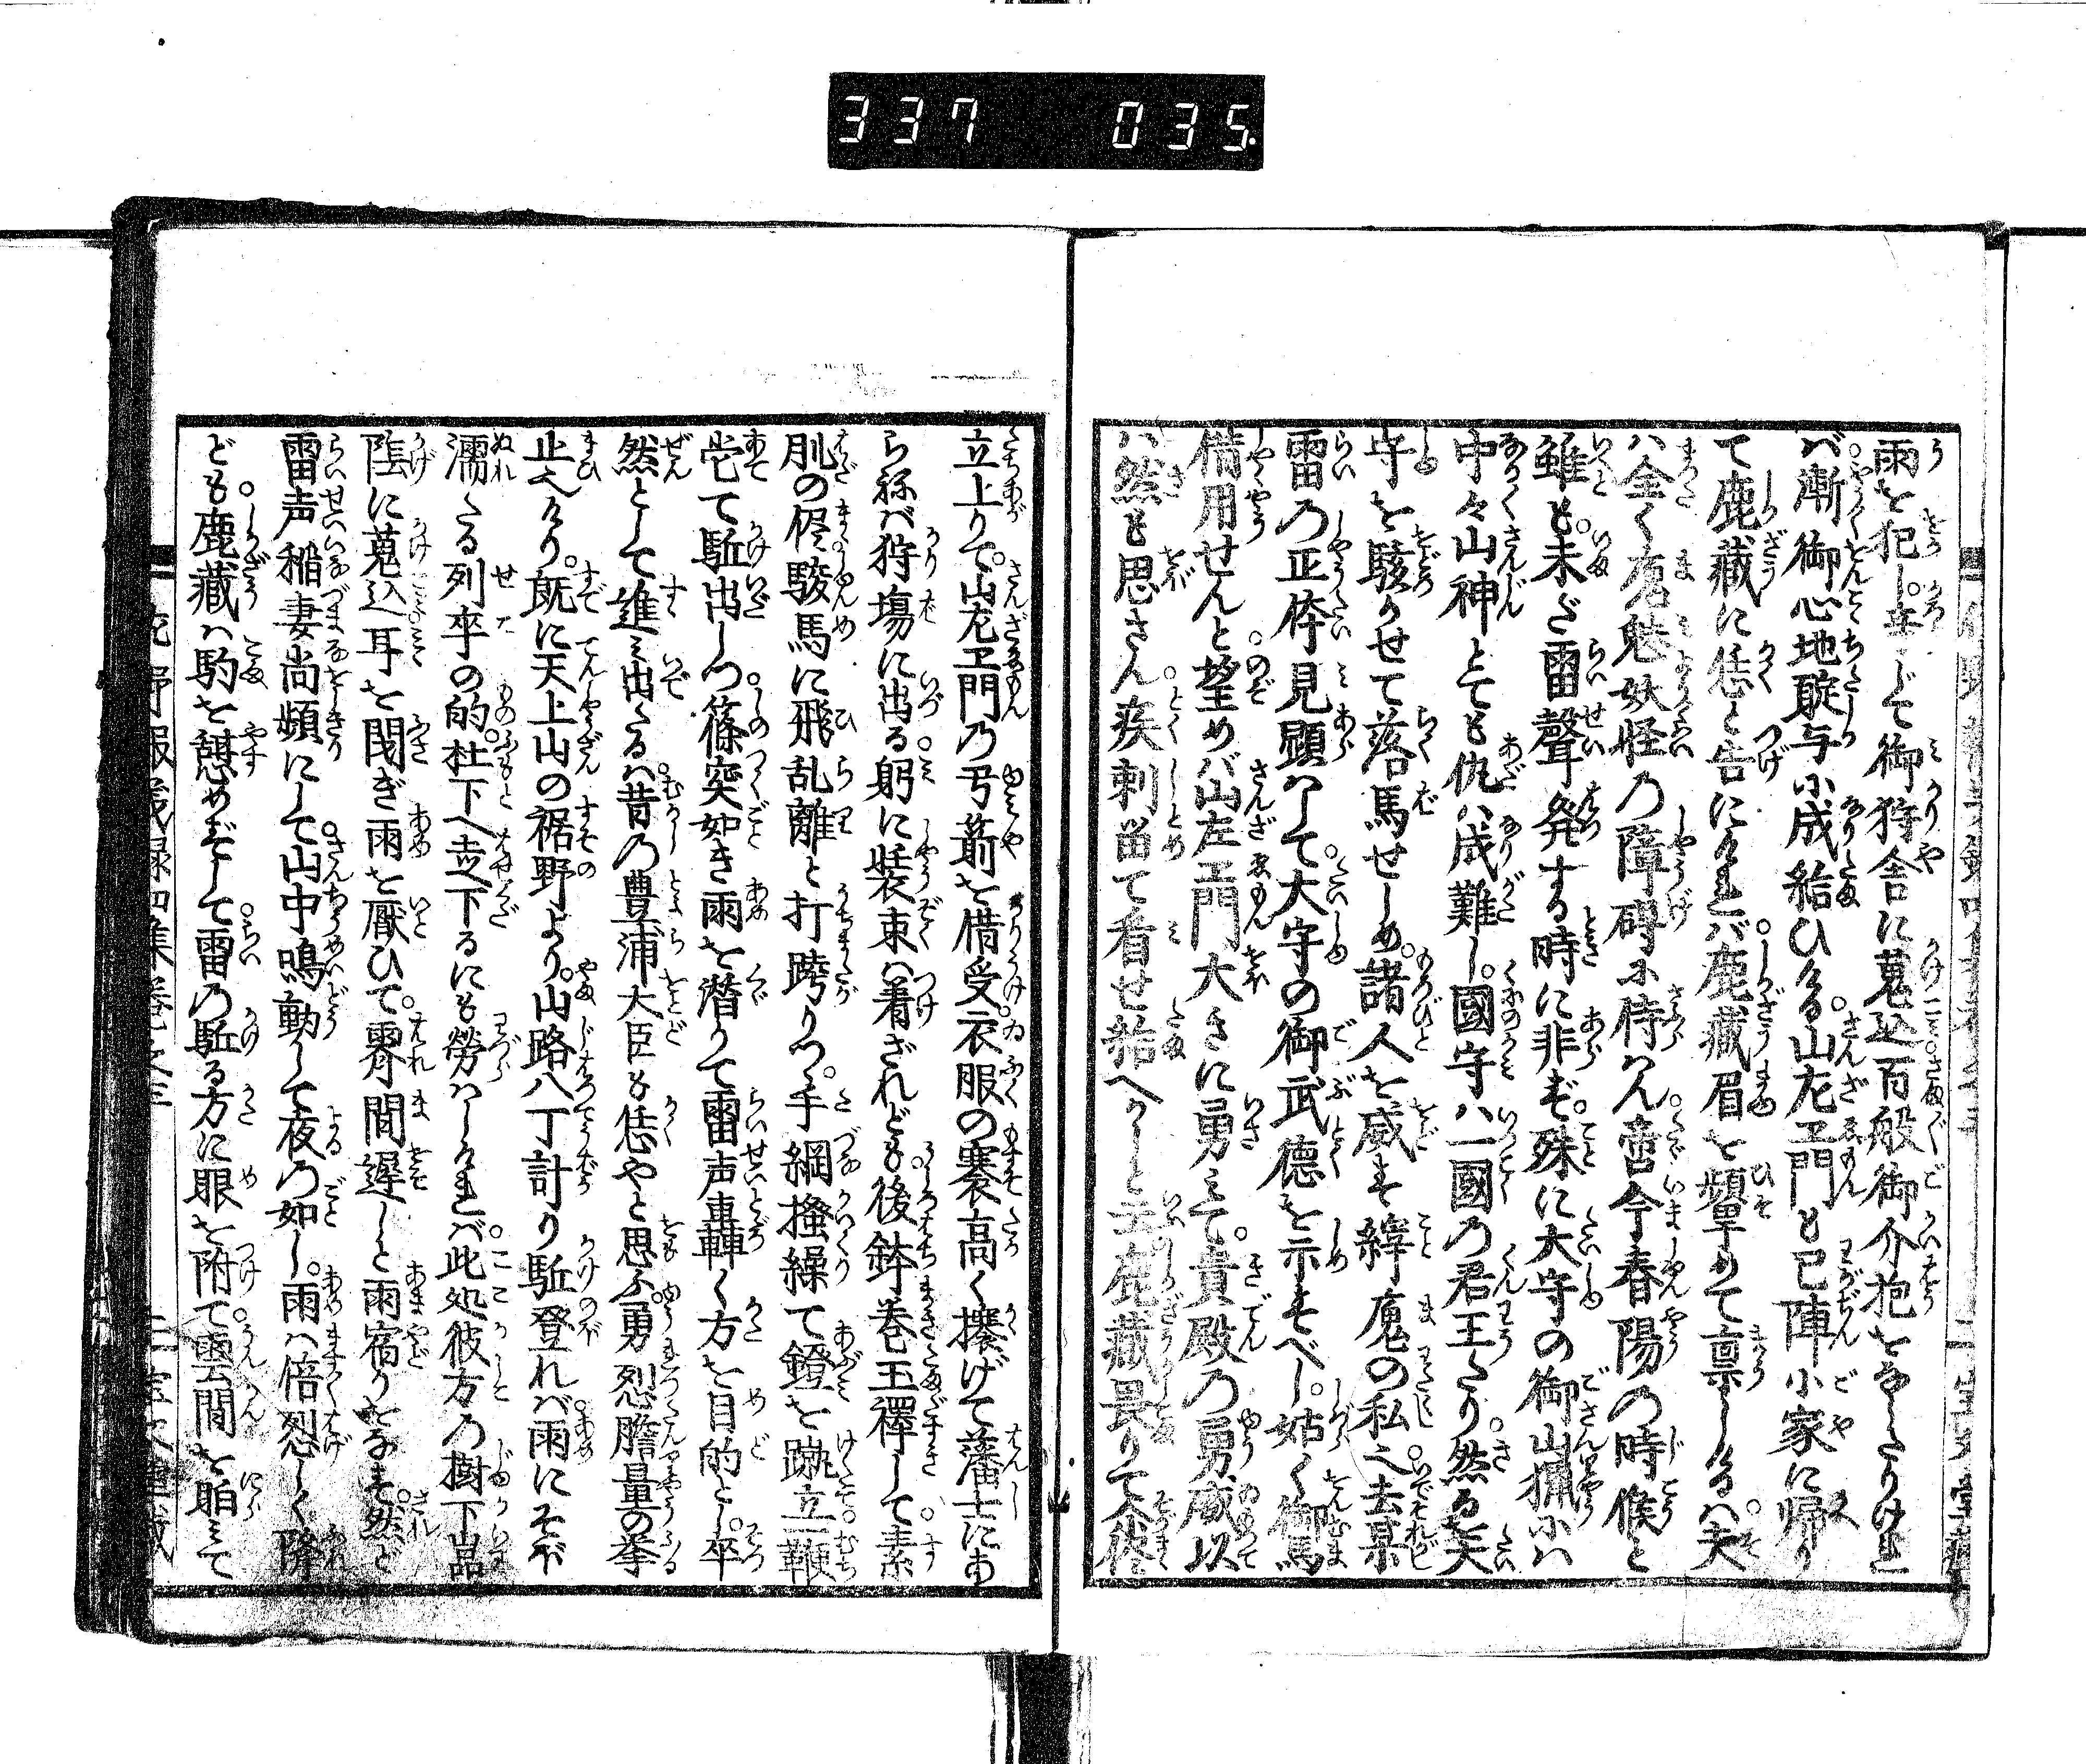 337 035
雨を犯し辛じて御狩舎に蒐込百般御介抱をなしたりけれ
バ漸御心地聢与小成給ひける山左エ門も已陣小家に帰り
て鹿蔵に恁と告にけれバ鹿蔵眉を顰めて禀しけるハ夫
ハ全く魔魅妖怪の障碍に侍らん啻今春陽の時候と
雖も未だ雷聲発する時に非ず殊に大守の御山猟小ハ
中々山神とても仇ハ成難し國守ハ一國の君王たり然るを夫
守を駭かせて落馬せしめ諸人を威す縡魔の私之去某
雷の正体見顕ハして大守の御武徳を示すべし姑く御馬
借用せんと望めバ山左エ門大きに勇ミて貴殿の勇威以
ハ然も思さん疾刺畄て看せ給へかしと云鹿蔵畏りて人侭
立上りて山左エ門の弓箭を借受衣服の褰高く攘げて藩士にあ
らねバ狩場に出る躬に装束ハ着ざれども後鉢巻玉襷して素
肌の侭駿馬に飛乱離と打跨りつゝ手綱掻繰て鐙を蹴立鞭
当て駈出しつ篠突如き雨を潜りて雷声轟く方を目的とし卒
然として進ミ出たるハ昔の豊浦大臣も恁やと思ふ勇烈膽量の挙
止へけり既に天上山の裾野より山路八丁計り駈登れバ雨にそぼ
濡たる列卒の的社下へ立下るにも労ハしけれバ此処彼方の樹下嵓
陰に蒐込耳を閉ぎ雨を厭ひて霽間遅しと雨宿りをなす然ど
雷声稲妻尚頻にして山中鳴動して夜の如し雨ハ倍烈しく降
ども鹿蔵ハ駒を憩めずして雷の駈る方に眼を附て雲間を睨ミて